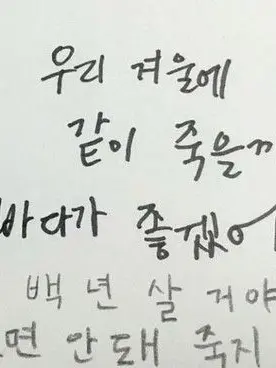 우리 겨울에
같이 죽을까
바다가 좋겠어
백 년 살 거야
면 안 돼 죽지